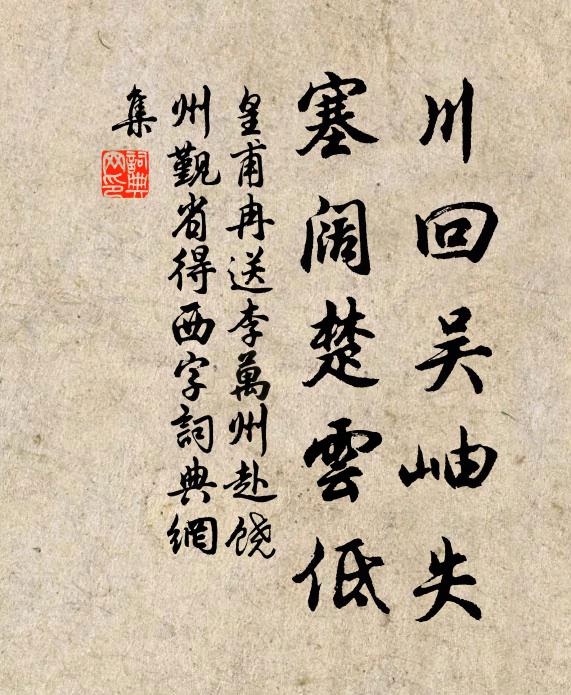 川回吴岫失
塞阔楚雲低
皇甫冉送李萬州赴饶
州觐省得西字詞典網
集
詞典網印